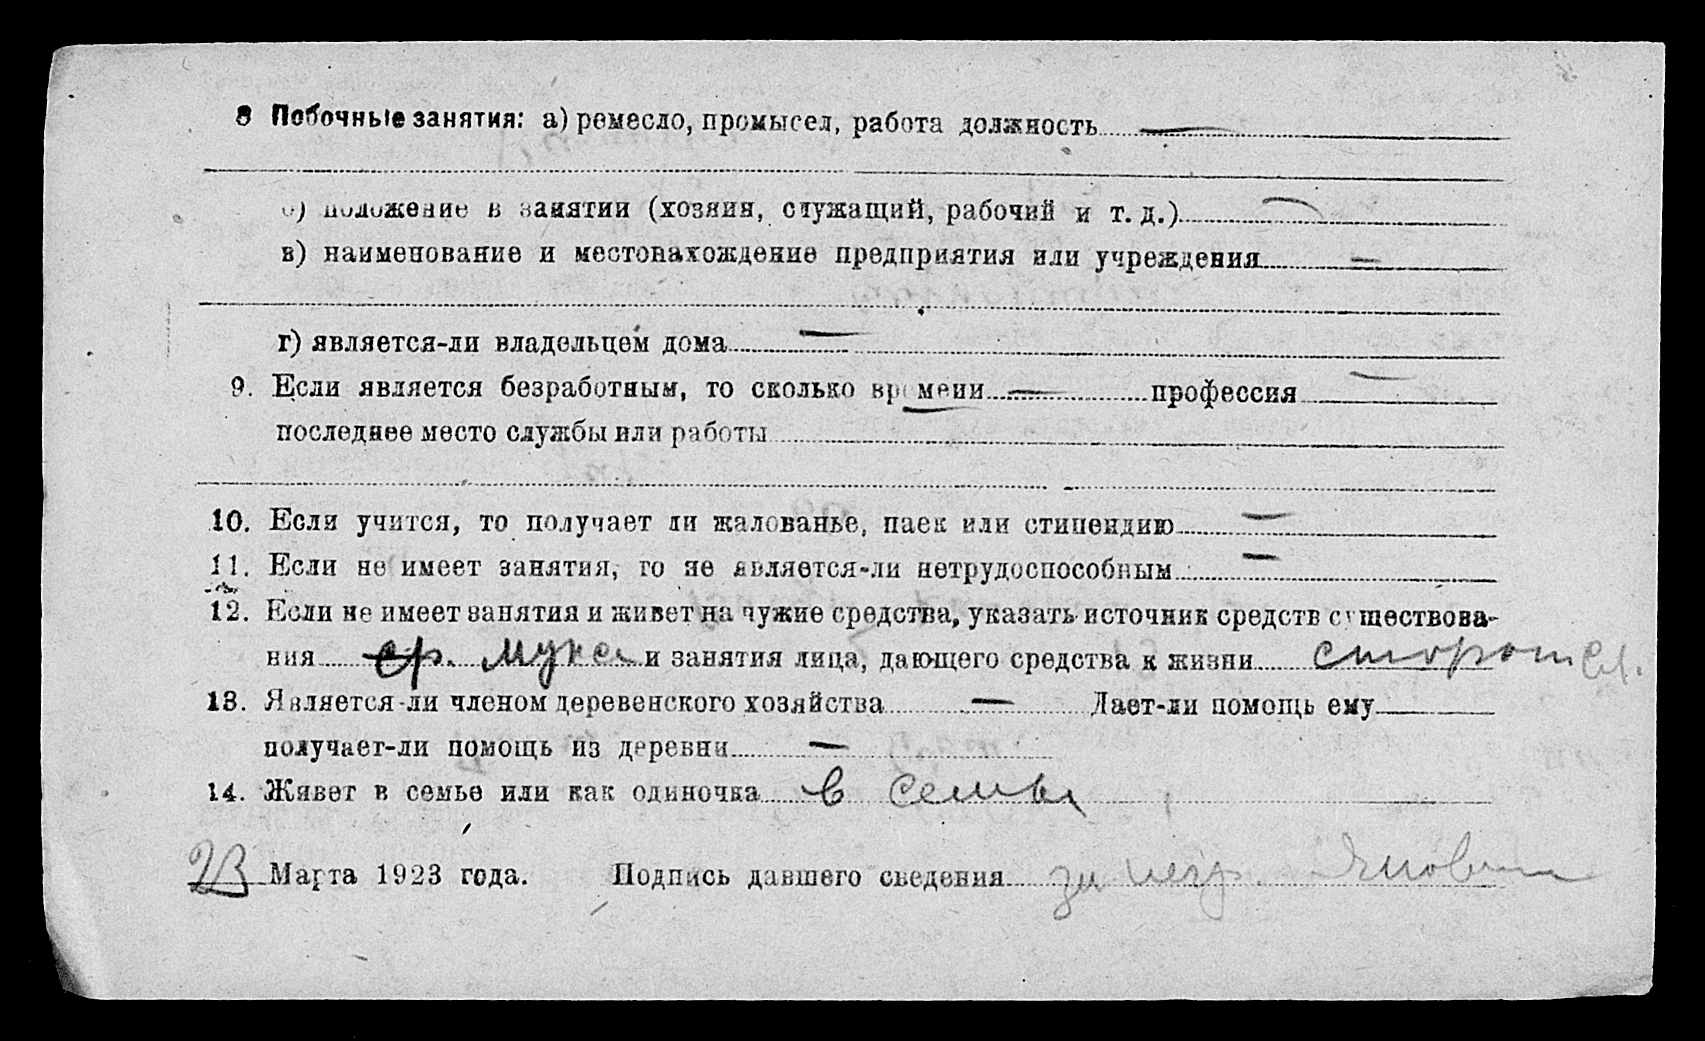 8 Побочные занятия: а) ремесло, промысел, работа должность —
б) положение в занятии (хозяин, служащий, рабочий и т. д.) —
в) наименование и местонахождение предприятия или учреждения —
г) является-ли владельцем дома —
9. Если является безработным, то сколько времени — профессия —
последнее место службы или работы —
10. Если учится, то получает ли жалованье, паек или стипендию —
11. Если не имеет занятия, то не является-ли нетрудоспособным —
12. Если не имеет занятия и живет на чужие средства, указать источник средств существова-
ния ср. мужа и занятия лица, дающего средства к жизни
13. Является-ли членом деревенского хозяйства — Дает-ли помощь ему
получает-ли помощь из деревни —
14. Живет в семье или как одиночка в семье
23 Марта 1923 года. Подпись давшего сведения за негр.